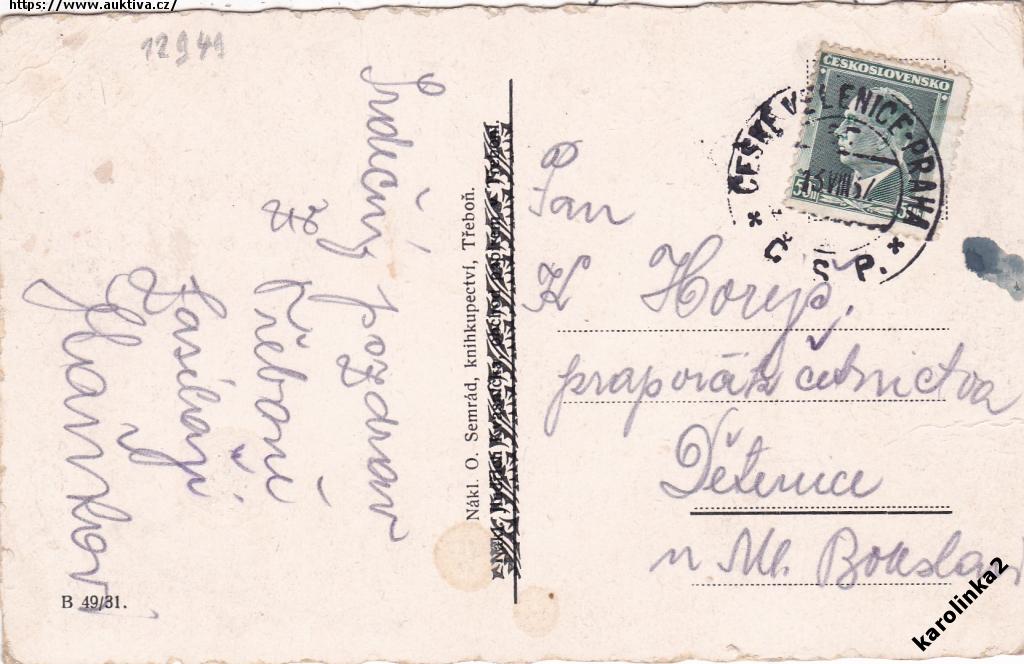 https://www.auktiva.cz/
12949
Srdečný pozdrav
z
Třeboně
zasílají
Nákl. O. Semrád, knihkupectví, Třeboň.
B 49/31.
ČESKOSLOVENSKO
ČESKÉ VELENICE-PRAHA
Č S P.
Pan
K Horyč,
praporčík četnictva
Dětenice
n Ml. Boleslav
karolinka2